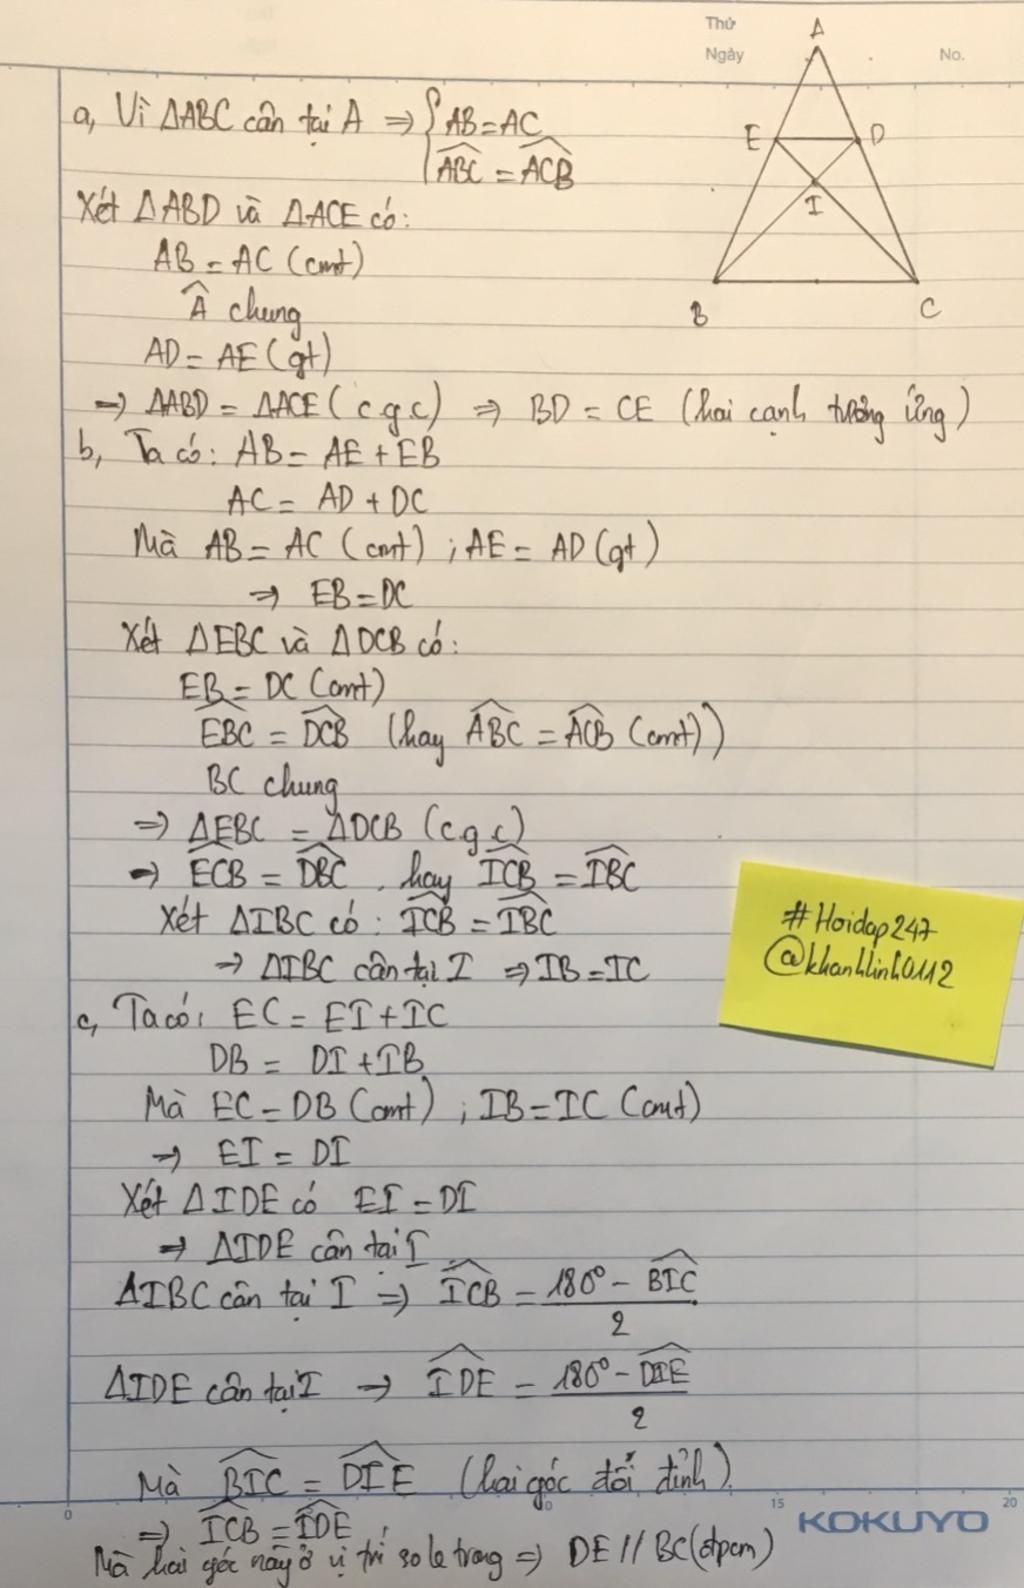 Thứ
Ngày
No.
A
E
D
I
B
C
a, Vì ΔABC cân tại A ⇒ { AB = AC
ABC^ = ACB^
Xét ΔABD và ΔACE có:
AB = AC (cmt)
Â chung
AD = AE (gt)
⇒ ΔABD = ΔACE (c.g.c) ⇒ BD = CE (hai cạnh tương ứng)
b, Ta có: AB = AE + EB
AC = AD + DC
Mà AB = AC (cmt) ; AE = AD (gt)
⇒ EB = DC
Xét ΔEBC và ΔDCB có:
EB = DC (cmt)
EBC^ = DCB^ (hay ABC^ = ACB^ (cmt))
BC chung
⇒ ΔEBC = ΔDCB (c.g.c)
⇒ ECB^ = DBC^ . hay ICB^ = IBC^
Xét ΔIBC có: ICB^ = IBC^
⇒ ΔIBC cân tại I ⇒ IB = IC
#Hoidap247
@khanhlinh0112
c, Ta có: EC = EI + IC
DB = DI + IB
Mà EC = DB (cmt) ; IB = IC (cmt)
⇒ EI = DI
Xét ΔIDE có EI = DI
⇒ ΔIDE cân tại I
ΔIBC cân tại I ⇒ ICB^ = (180° - BIC^)/2
ΔIDE cân tại I ⇒ IDE^ = (180° - DIE^)/2
Mà BIC^ = DIE^ (hai góc đối đỉnh).
⇒ ICB^ = IDE^
Mà hai góc này ở vị trí so le trong ⇒ DE // BC (đpcm)
0
15
20
KOKUYO